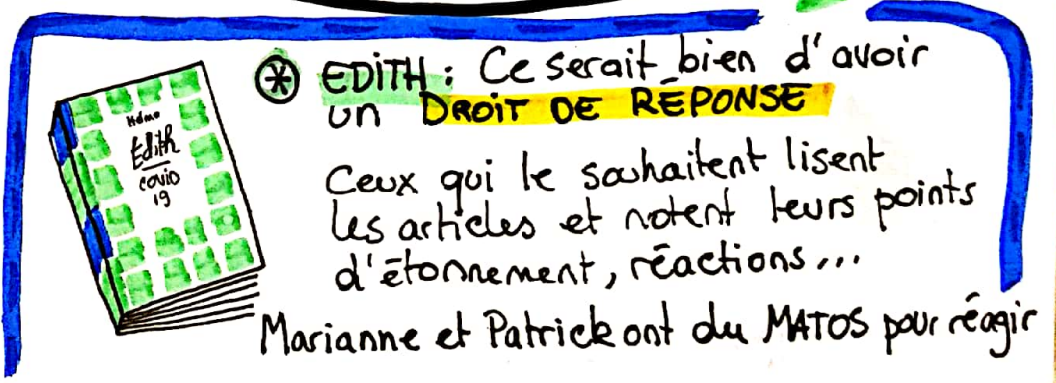 Mémo
Edith
COVID
19
✱ EDITH : Ce serait bien d'avoir
un DROIT DE RÉPONSE
Ceux qui le souhaitent lisent
les articles et notent leurs points
d'étonnement, réactions...
Marianne et Patrick ont du MATOS pour réagir